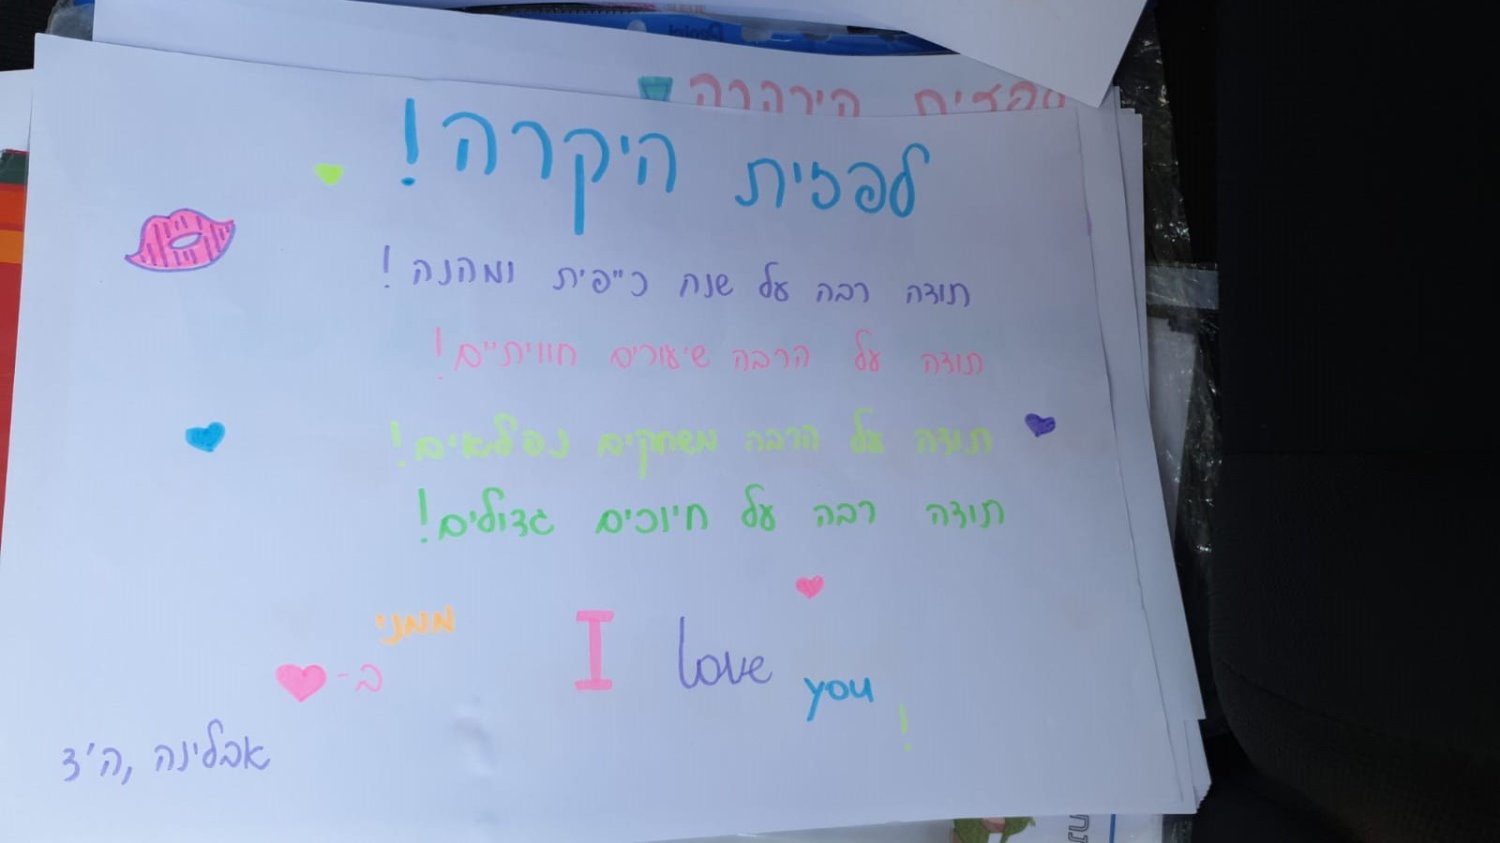 לפזית היקרה
לפזית היקרה!
תודה רבה על שנה כ"פית ומהנה!
תודה על הרבה שיעורים חוויתיים!
תודה על הרבה משחקים נפלאים!
תודה רבה על חיוכים גדולים!
I love you!
ממני
ב-
אבלינה, ה'3